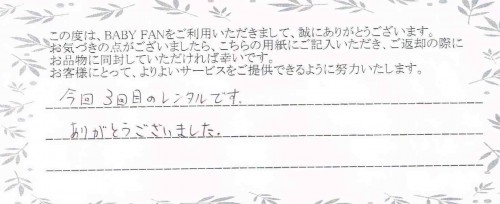 この度は、BABY FANをご利用いただきまして、誠にありがとうございます。
お気づきの点がございましたら、こちらの用紙にご記入いただき、ご返却の際に
お品物に同封していただければ幸いです。
お客様にとって、よりよいサービスをご提供できるように努力いたします。
今回 3回目のレンタルです。
ありがとうございました。